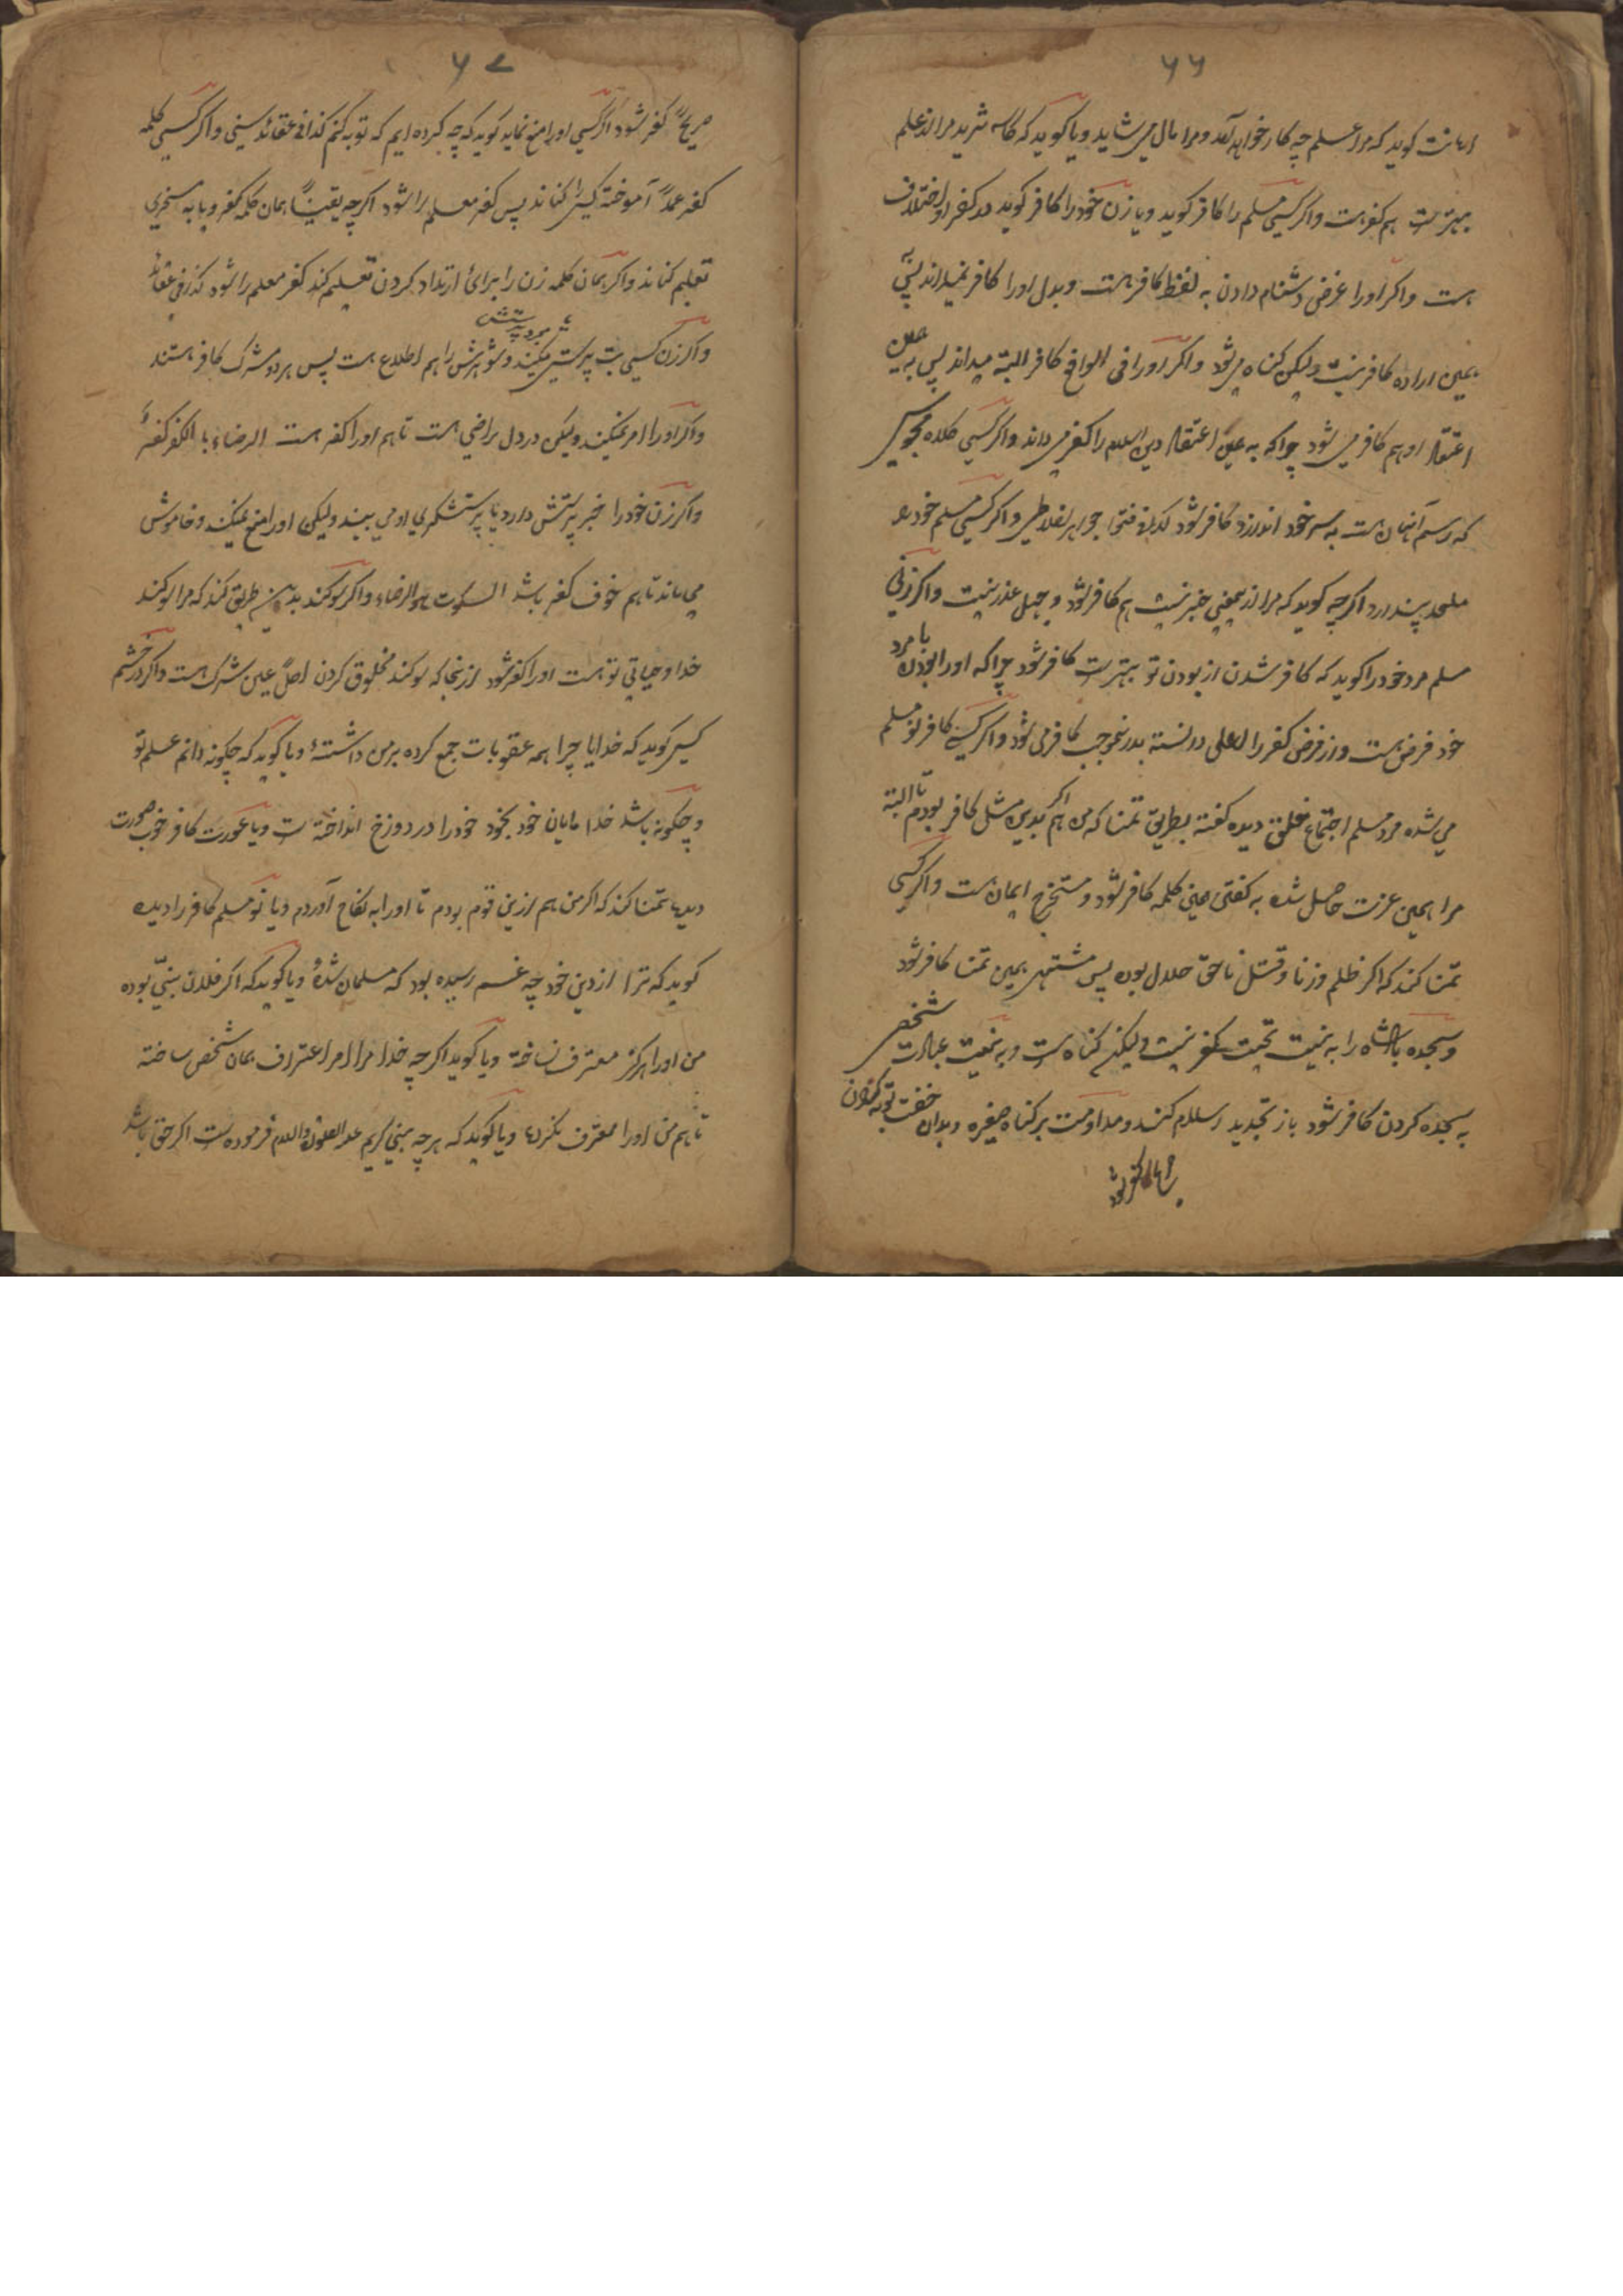 ۶۶
اهانت گوید که مرا علم چه کار خواهد آمد و مرا مال می شاید و یا گوید که کاسه ثرید مرا از علم
بهترست هم کفر هست و اگر کسی مسلم را کافر گوید و یا زن خود را کافر گوید در کفر او اختلاف
هست و اگر او را غرض دشنام دادن به لفظ کافر هست و بدل او را کافر نمیداند پس به
همین اراده کافر نیست ولیکن گناه می شود و اگر او را فی الواقع کافر البته میداند پس به عین
اعتقاد او هم کافر می شود چرا که به عین اعتقاد دین اسلام را کفر می داند و اگر کسی کلاه مجوس
که رسم آنهان هست به سر خود اندازد کافر شود کذا فی فتوا جواهر اخلاطی و اگر کسی مسلم خود را
ملحد پندارد اگرچه گوید که مرا ازیمعنی خبر نیست هم کافر شود و جهل عذر نیست و اگر زنی
مسلم مرد خود را گوید که کافر شدن از بودن تو بهترست کافر شود چرا که او را بودن با مرد
خود فرض هست و از فرض کفر را اعلی دانسته بدینموجب کافر می شود و اگر کسے کافر نو مسلم
می شده مرد مسلم اجتماع خلق دیده گفته بطریق تمنا که من هم اگر بدین مثل کافر بودم تا البته
مرا همین عزت حاصل شده به گفتن همین کلمه کافر شود و مستخرج ایمان هست و اگر کسی
تمنا کند که اگر ظلم و زنا و قتل ناحق حلال بوده پس مشتهر بهمین تمنا کافر شود
و سجده بادشاه را به نیت تحیت کفر نیست ولیکن گناه ست و به نیت عبادت شخص
به سجده کردن کافر شود باز تجدید اسلام کند و مداومت بر گناه صغیره و بدان خفت توبه نکردن
۶۷
صریحاً کفر شود اگر کسی او را منع نماید گوید که چه کرده ایم که توبه کنم کذا فی عقائد سنی و اگر کسی کلمه
کفر عمداً آموخته کسی را کناند پس کفر معلم را شود اگرچه یقیناً همان کلمه کفر و یا به مسخری
تعلیم کناند و اگر همان کلمه زن را برائ ارتداد کردن تعلیم کند کفر معلم را شود کذا فی عقائد
و اگر زن کسی بت پرستی میکند و شوهرش را هم اطلاع هست پس هر دو مشرک کافر هستند
و اگر او را امر نمیکند ولیکن در دل راضی هست تا هم او را کفر هست الرضاء با الکفر کفرٌ
و اگر زن خود را خبر پرستش دارد یا پرستشگری او می بیند ولیکن او را منع نمیکند و خاموش
می ماند تا هم خوف کفر باشد السکوت هو الرضاء و اگر سوگند بدین طریق کند که مرا سوگند
خدا و حیاتی تو هست او را کفر شود ازینجا که سوگند مخلوق کردن اصلً عین شرک هست و اگر در خشم
کسی گوید که خدایا چرا همه عقوبات جمع کرده بر من داشتهٔ و یا گوید که چگونه دانم علم تو
و چگونه باشد خدا مایان خود بخود خود را در دوزخ انداخته ست و یا عورت کافر خوب صورت
دیده تمنا کند که اگر من هم ازین قوم بودم تا او را به نکاح آوردم و یا نو مسلم کافر را دیده
گوید که ترا از دین خود چه غم رسیده بود که مسلمان شدهٔ و یا گوید که اگر فلان نبیّ بوده
من او را هرگز معترف نساخته و یا گوید اگرچه خدا مرا امر اعتراف همان شخص ساخته
تا هم من او را معترف نکردم و یا گوید که هر چه نبی کریم علیه الصلوة والسلام فرموده ست اگر حق باشد